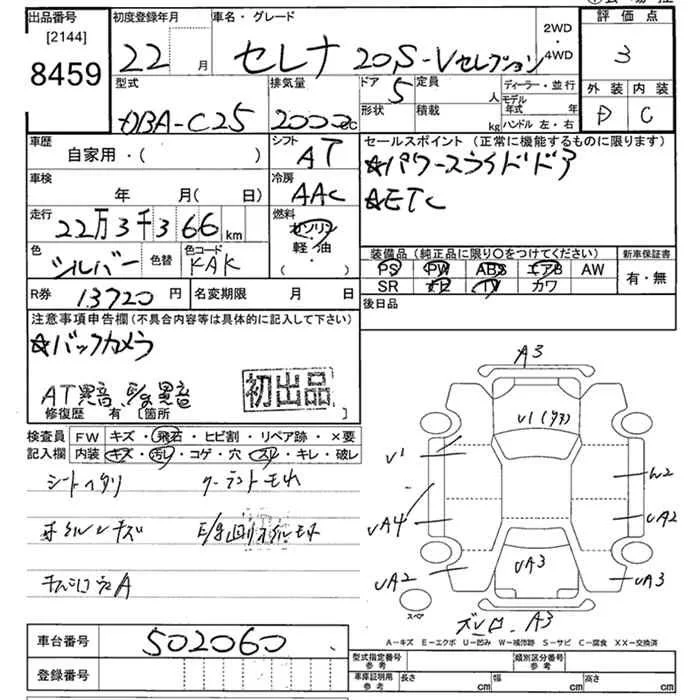 出品番号 初度登録年月 車名・グレード 2WD 評価点
[2144] 22 月 セレナ 20S-Vセレクション ・ 3
8459 4WD
型式 排気量 ドア 定員 ディーラー・並行 外装 内装
DBA-C25 2000cc 5 人 モデル年式 年 D C
形状 積載 kg ハンドル 左・右
車歴 シフト セールスポイント (正常に機能するものに限ります)
自家用・( ) AT ☆パワースライドドア
車検 冷房 ☆ETC
年 月(日) AAC
走行 燃料
22万3千366km ガソリン
軽油
・( ) 装備品 (純正品に限り〇をつけてください) 新車保証書
色 シルバー 色替 色コード KAK PS PW ABS エアB AW 有・無
SR TV カワ
R券 13720円 名変期限 月 日 後日品
注意事項申告欄(不具合内容等は具体的に記入して下さい)
☆バックカメラ
AT異音、E/g異音 初出品
修復歴 有 [箇所 ]
検査員 FW キズ・飛石・ヒビ割・リペア跡・×要
記入欄 内装 キズ・汚レ・コゲ・穴・スレ・キレ・破レ
シートヘタリ クーラントモレ
A
A3
V1
V1
W2
UA4 UA2
UA2 UA3 UA3
スペア A3
A-キズ E-エクボ U-凹み W-補修跡 S-サビ C-腐食 XX-交換済
車台番号 502060
登録番号
型式指定番号 参考 類別区分番号 参考
車庫証明用 参考 長さ cm 幅 cm 高さ cm